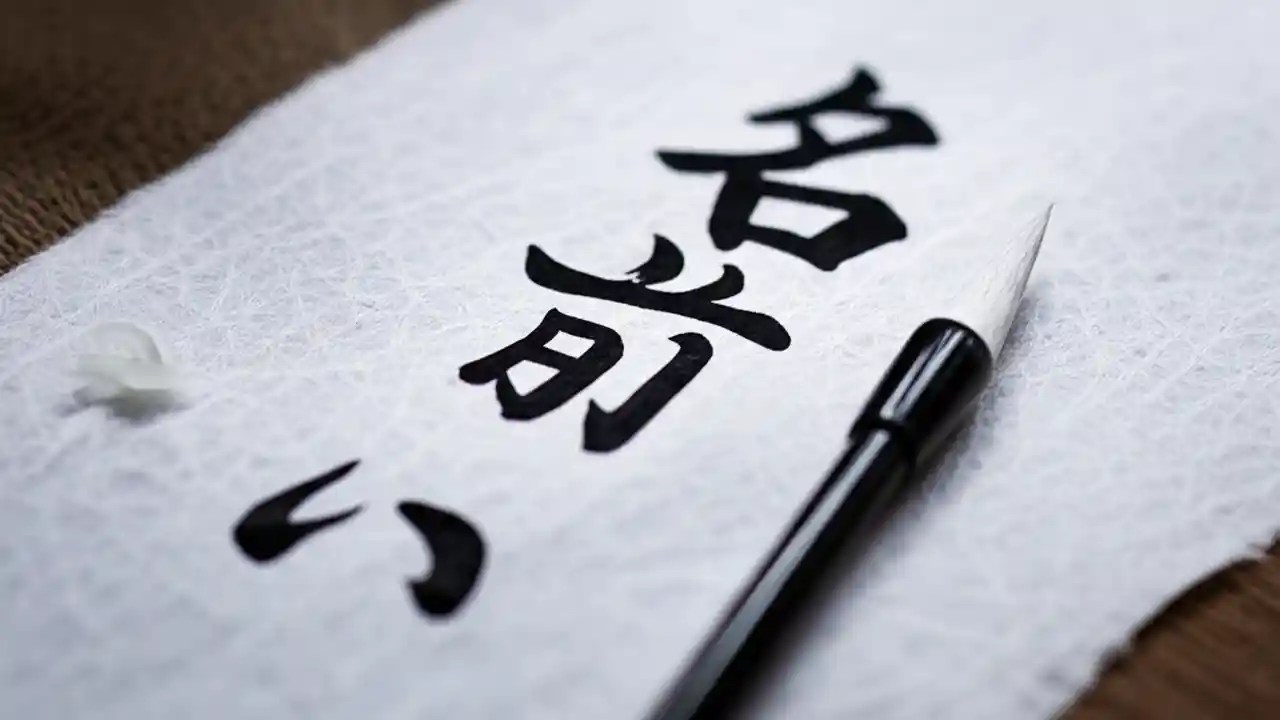 名前い